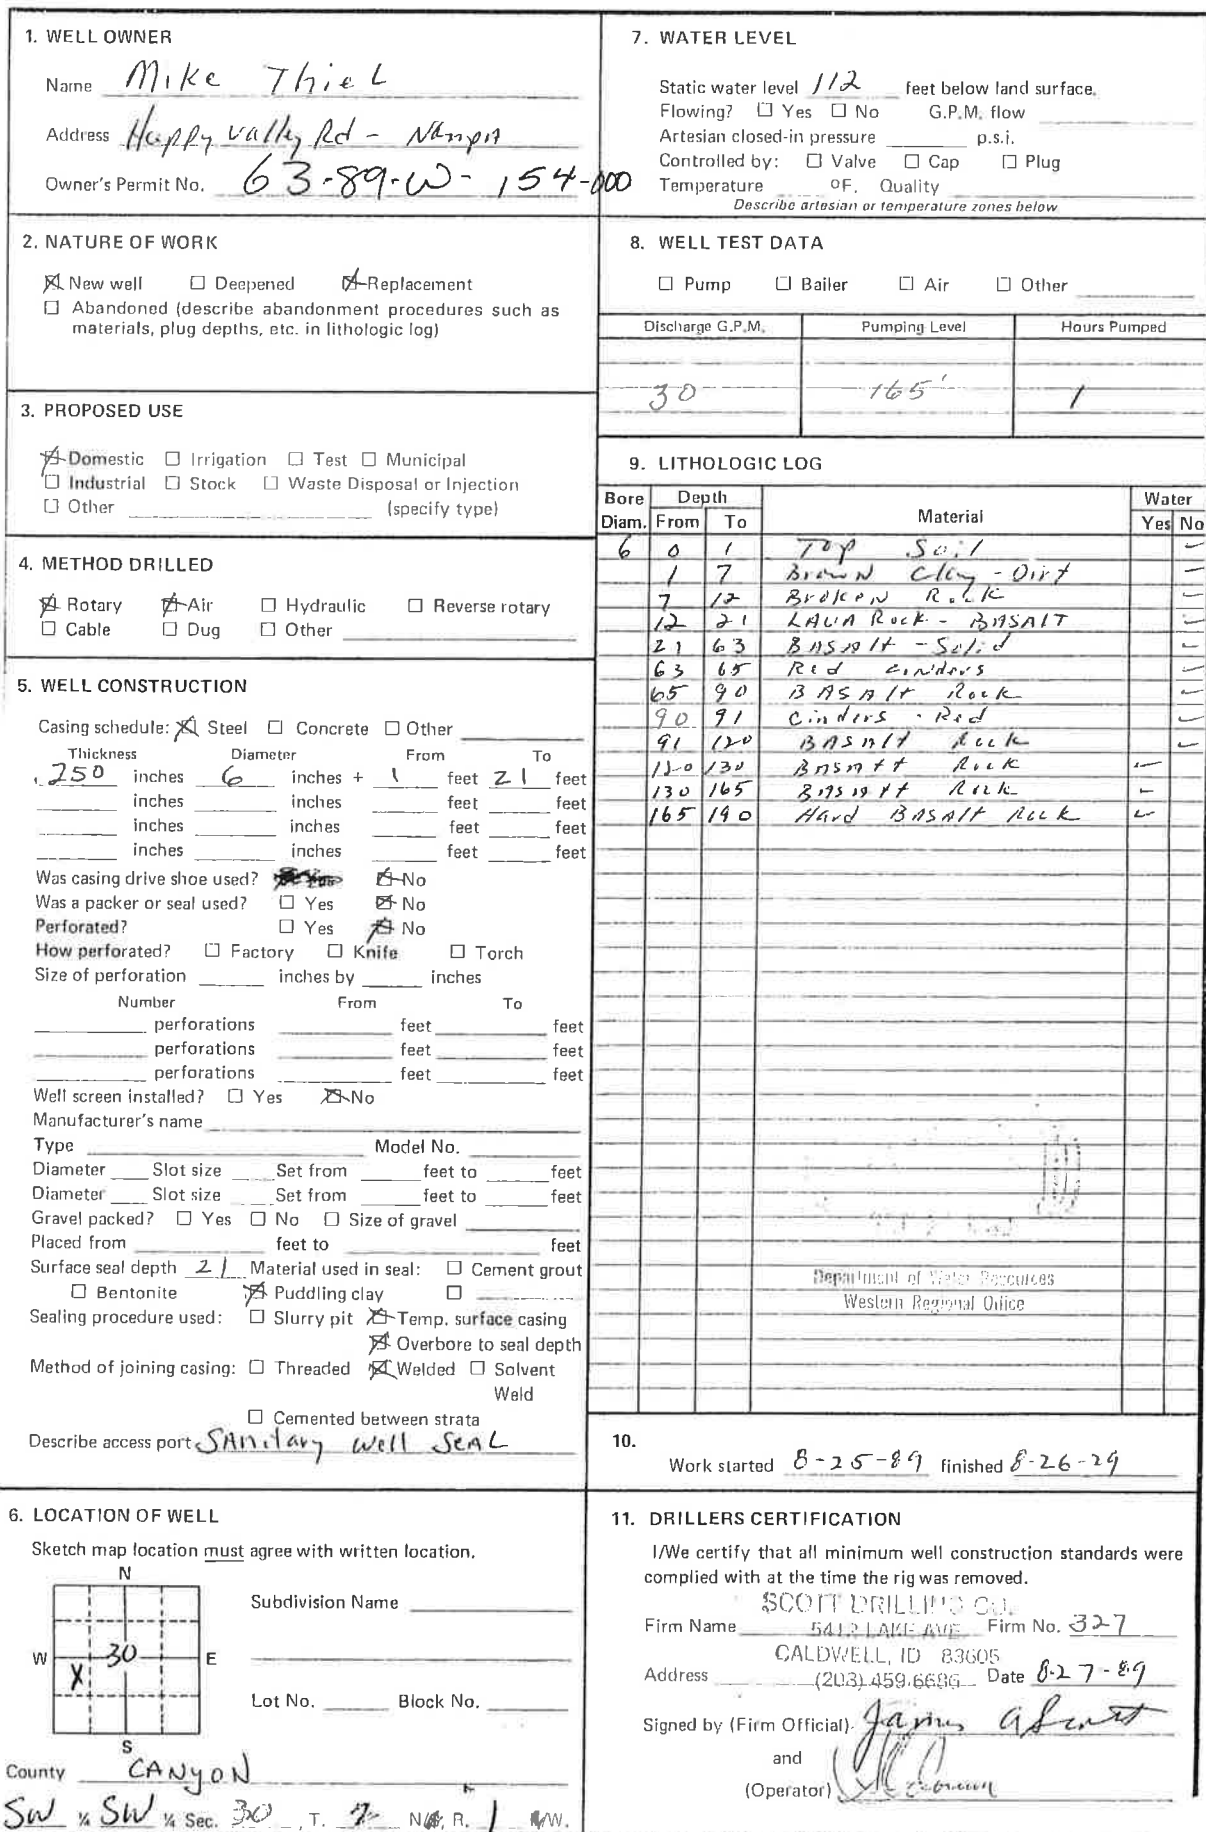 1. WELL OWNER
Name Mike Thiel
Address Happy Valley Rd - Nampa
Owner's Permit No. 63-89-W-154-000
2. NATURE OF WORK
☒ New well ☐ Deepened ☒ Replacement
☐ Abandoned (describe abandonment procedures such as
materials, plug depths, etc. in lithologic log)
3. PROPOSED USE
☒ Domestic ☐ Irrigation ☐ Test ☐ Municipal
☐ Industrial ☐ Stock ☐ Waste Disposal or Injection
☐ Other (specify type)
4. METHOD DRILLED
☒ Rotary ☒ Air ☐ Hydraulic ☐ Reverse rotary
☐ Cable ☐ Dug ☐ Other
5. WELL CONSTRUCTION
Casing schedule: ☒ Steel ☐ Concrete ☐ Other
Thickness Diameter From To
.250 inches 6 inches + 1 feet 21 feet
inches inches feet feet
inches inches feet feet
inches inches feet feet
Was casing drive shoe used? ☒ No
Was a packer or seal used? ☐ Yes ☒ No
Perforated? ☐ Yes ☒ No
How perforated? ☐ Factory ☐ Knife ☐ Torch
Size of perforation inches by inches
Number From To
perforations feet feet
perforations feet feet
perforations feet feet
Well screen installed? ☐ Yes ☒ No
Manufacturer's name
Type Model No.
Diameter Slot size Set from feet to feet
Diameter Slot size Set from feet to feet
Gravel packed? ☐ Yes ☐ No ☐ Size of gravel
Placed from feet to feet
Surface seal depth 21 Material used in seal: ☐ Cement grout
☐ Bentonite ☒ Puddling clay ☐
Sealing procedure used: ☐ Slurry pit ☒ Temp. surface casing
☒ Overbore to seal depth
Method of joining casing: ☐ Threaded ☒ Welded ☐ Solvent
Weld
☐ Cemented between strata
Describe access port SANitary Well SeAL
6. LOCATION OF WELL
Sketch map location must agree with written location.
N
W 30 E
X
S
Subdivision Name
Lot No. Block No.
County CANyON
SW ¼ SW ¼ Sec. 30, T. N/S, R. 1 E/W.
7. WATER LEVEL
Static water level 112 feet below land surface.
Flowing? ☐ Yes ☐ No G.P.M. flow
Artesian closed-in pressure p.s.i.
Controlled by: ☐ Valve ☐ Cap ☐ Plug
Temperature ºF. Quality
Describe artesian or temperature zones below
8. WELL TEST DATA
☐ Pump ☐ Bailer ☐ Air ☐ Other
Discharge G.P.M. Pumping Level Hours Pumped
30 165' 1
9. LITHOLOGIC LOG
Bore Depth Water
Diam. From To Material Yes No
6 0 1 Top Soil –
1 7 Brown Clay - Dirt –
7 12 Broken Rock –
12 21 LAVA Rock - BASAlT –
21 63 BASAlt - Solid –
63 65 Red cinders –
65 90 BASAlt Rock –
90 91 cinders - Red –
91 120 BASAlt Rock –
120 130 BASAlt Rock –
130 165 BASAlt Rock –
165 190 Hard BASAlt Rock –
Department of Water Resources
Western Regional Office
10.
Work started 8-25-89 finished 8-26-89
11. DRILLERS CERTIFICATION
I/We certify that all minimum well construction standards were
complied with at the time the rig was removed.
SCOTT DRILLING CO.
Firm Name 5412 LAKE AVE Firm No. 327
CALDWELL, ID 83605
Address (208) 459-6686 Date 8-27-89
Signed by (Firm Official) James A Scott
and
(Operator)